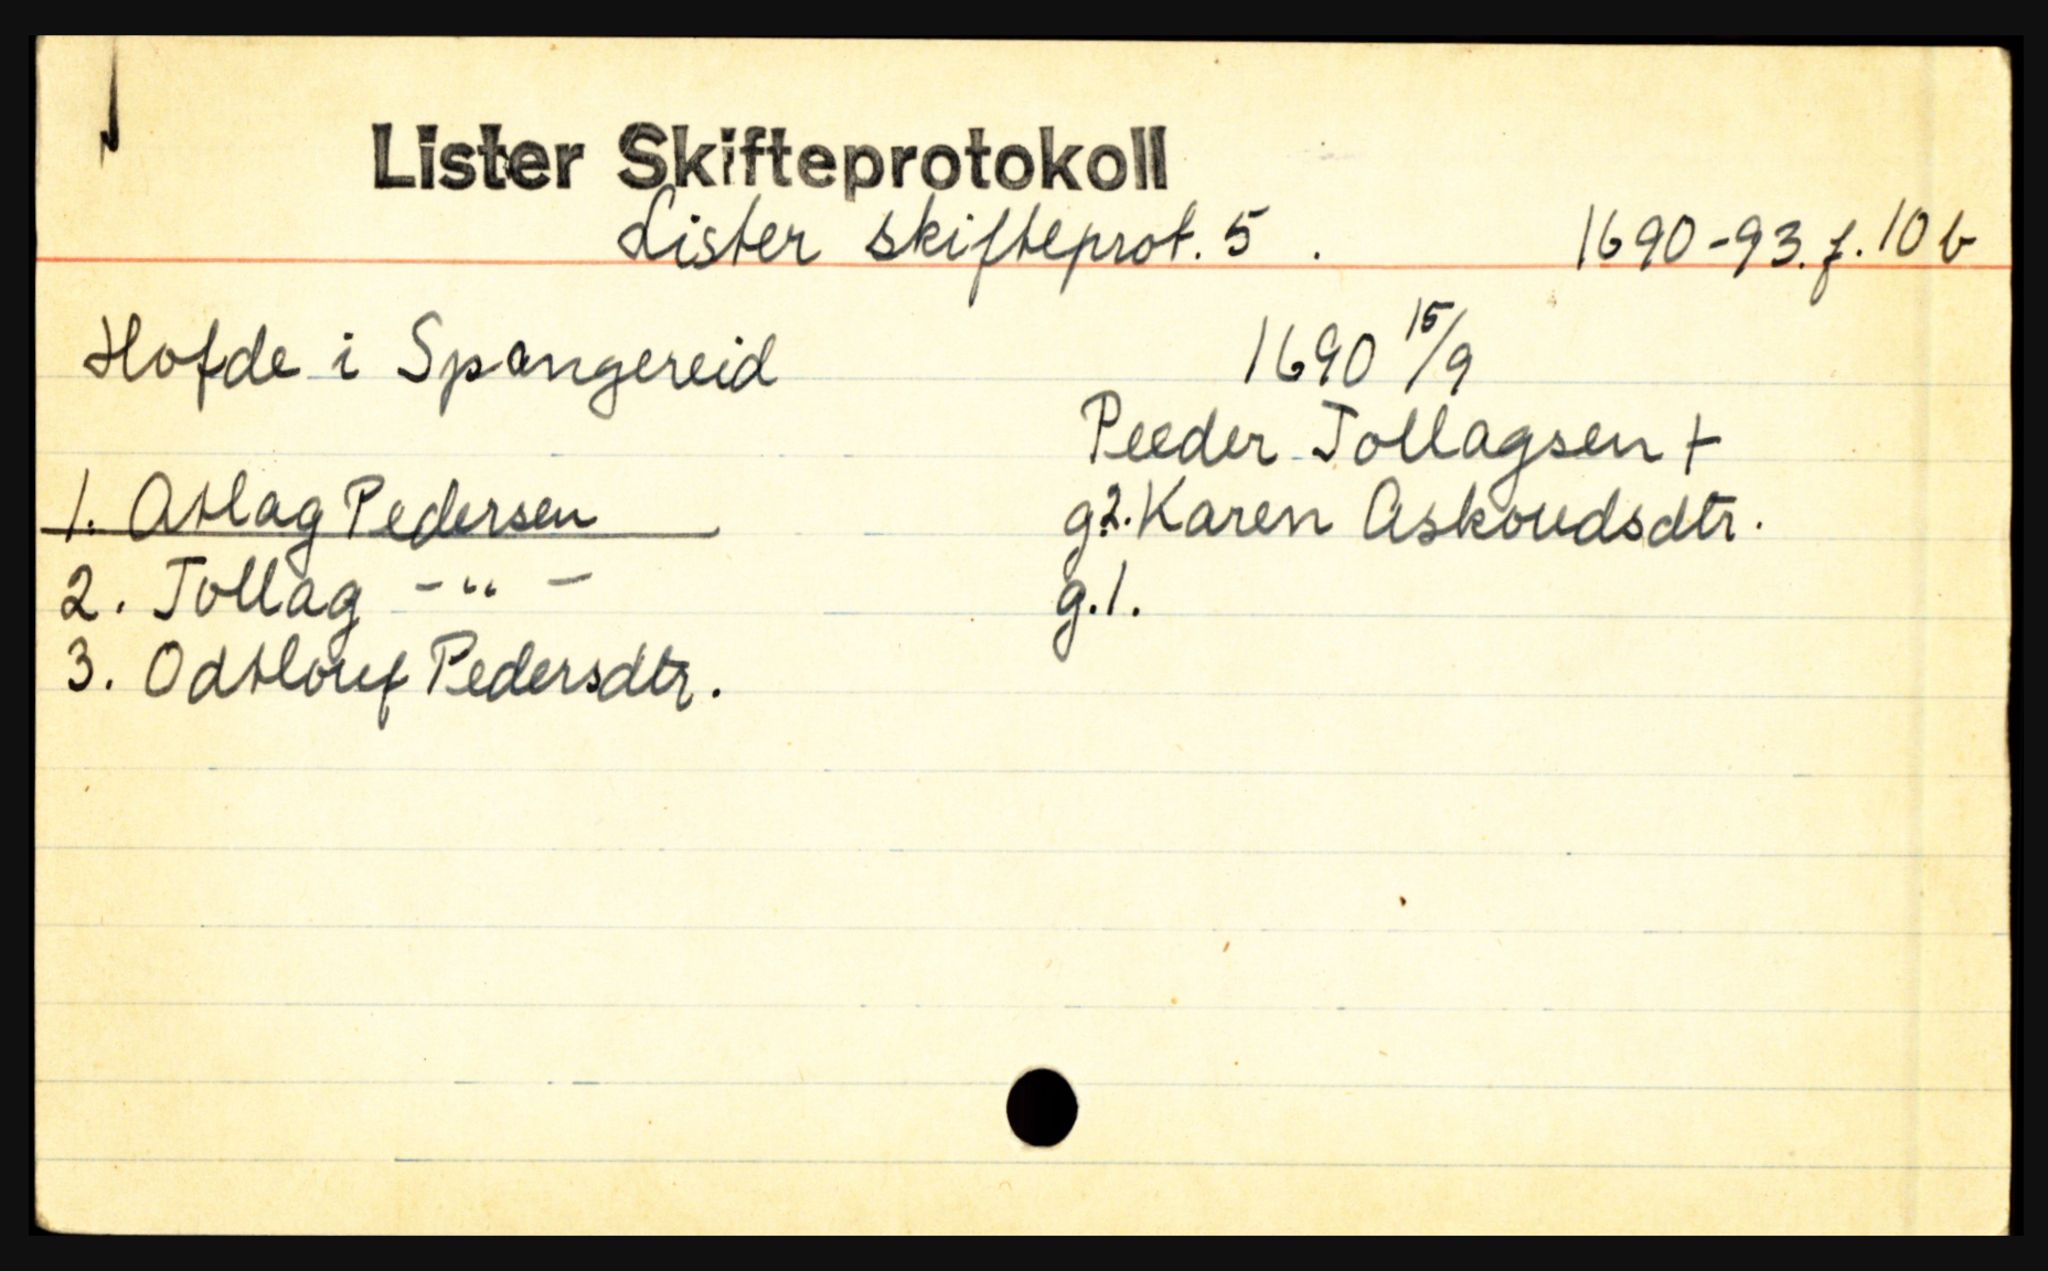 Lister Skifteprotokoll
Lister skifteprot. 5 . 1690-93. f. 10 b
Hofde i Spangereid 1690 15/9
Peeder Tollagsen +
1. Atlag Pedersen g.2. Karen Askoudsdtr.
2. Tollag - " - g.1.
3. Odtlouf Pedersdtr.